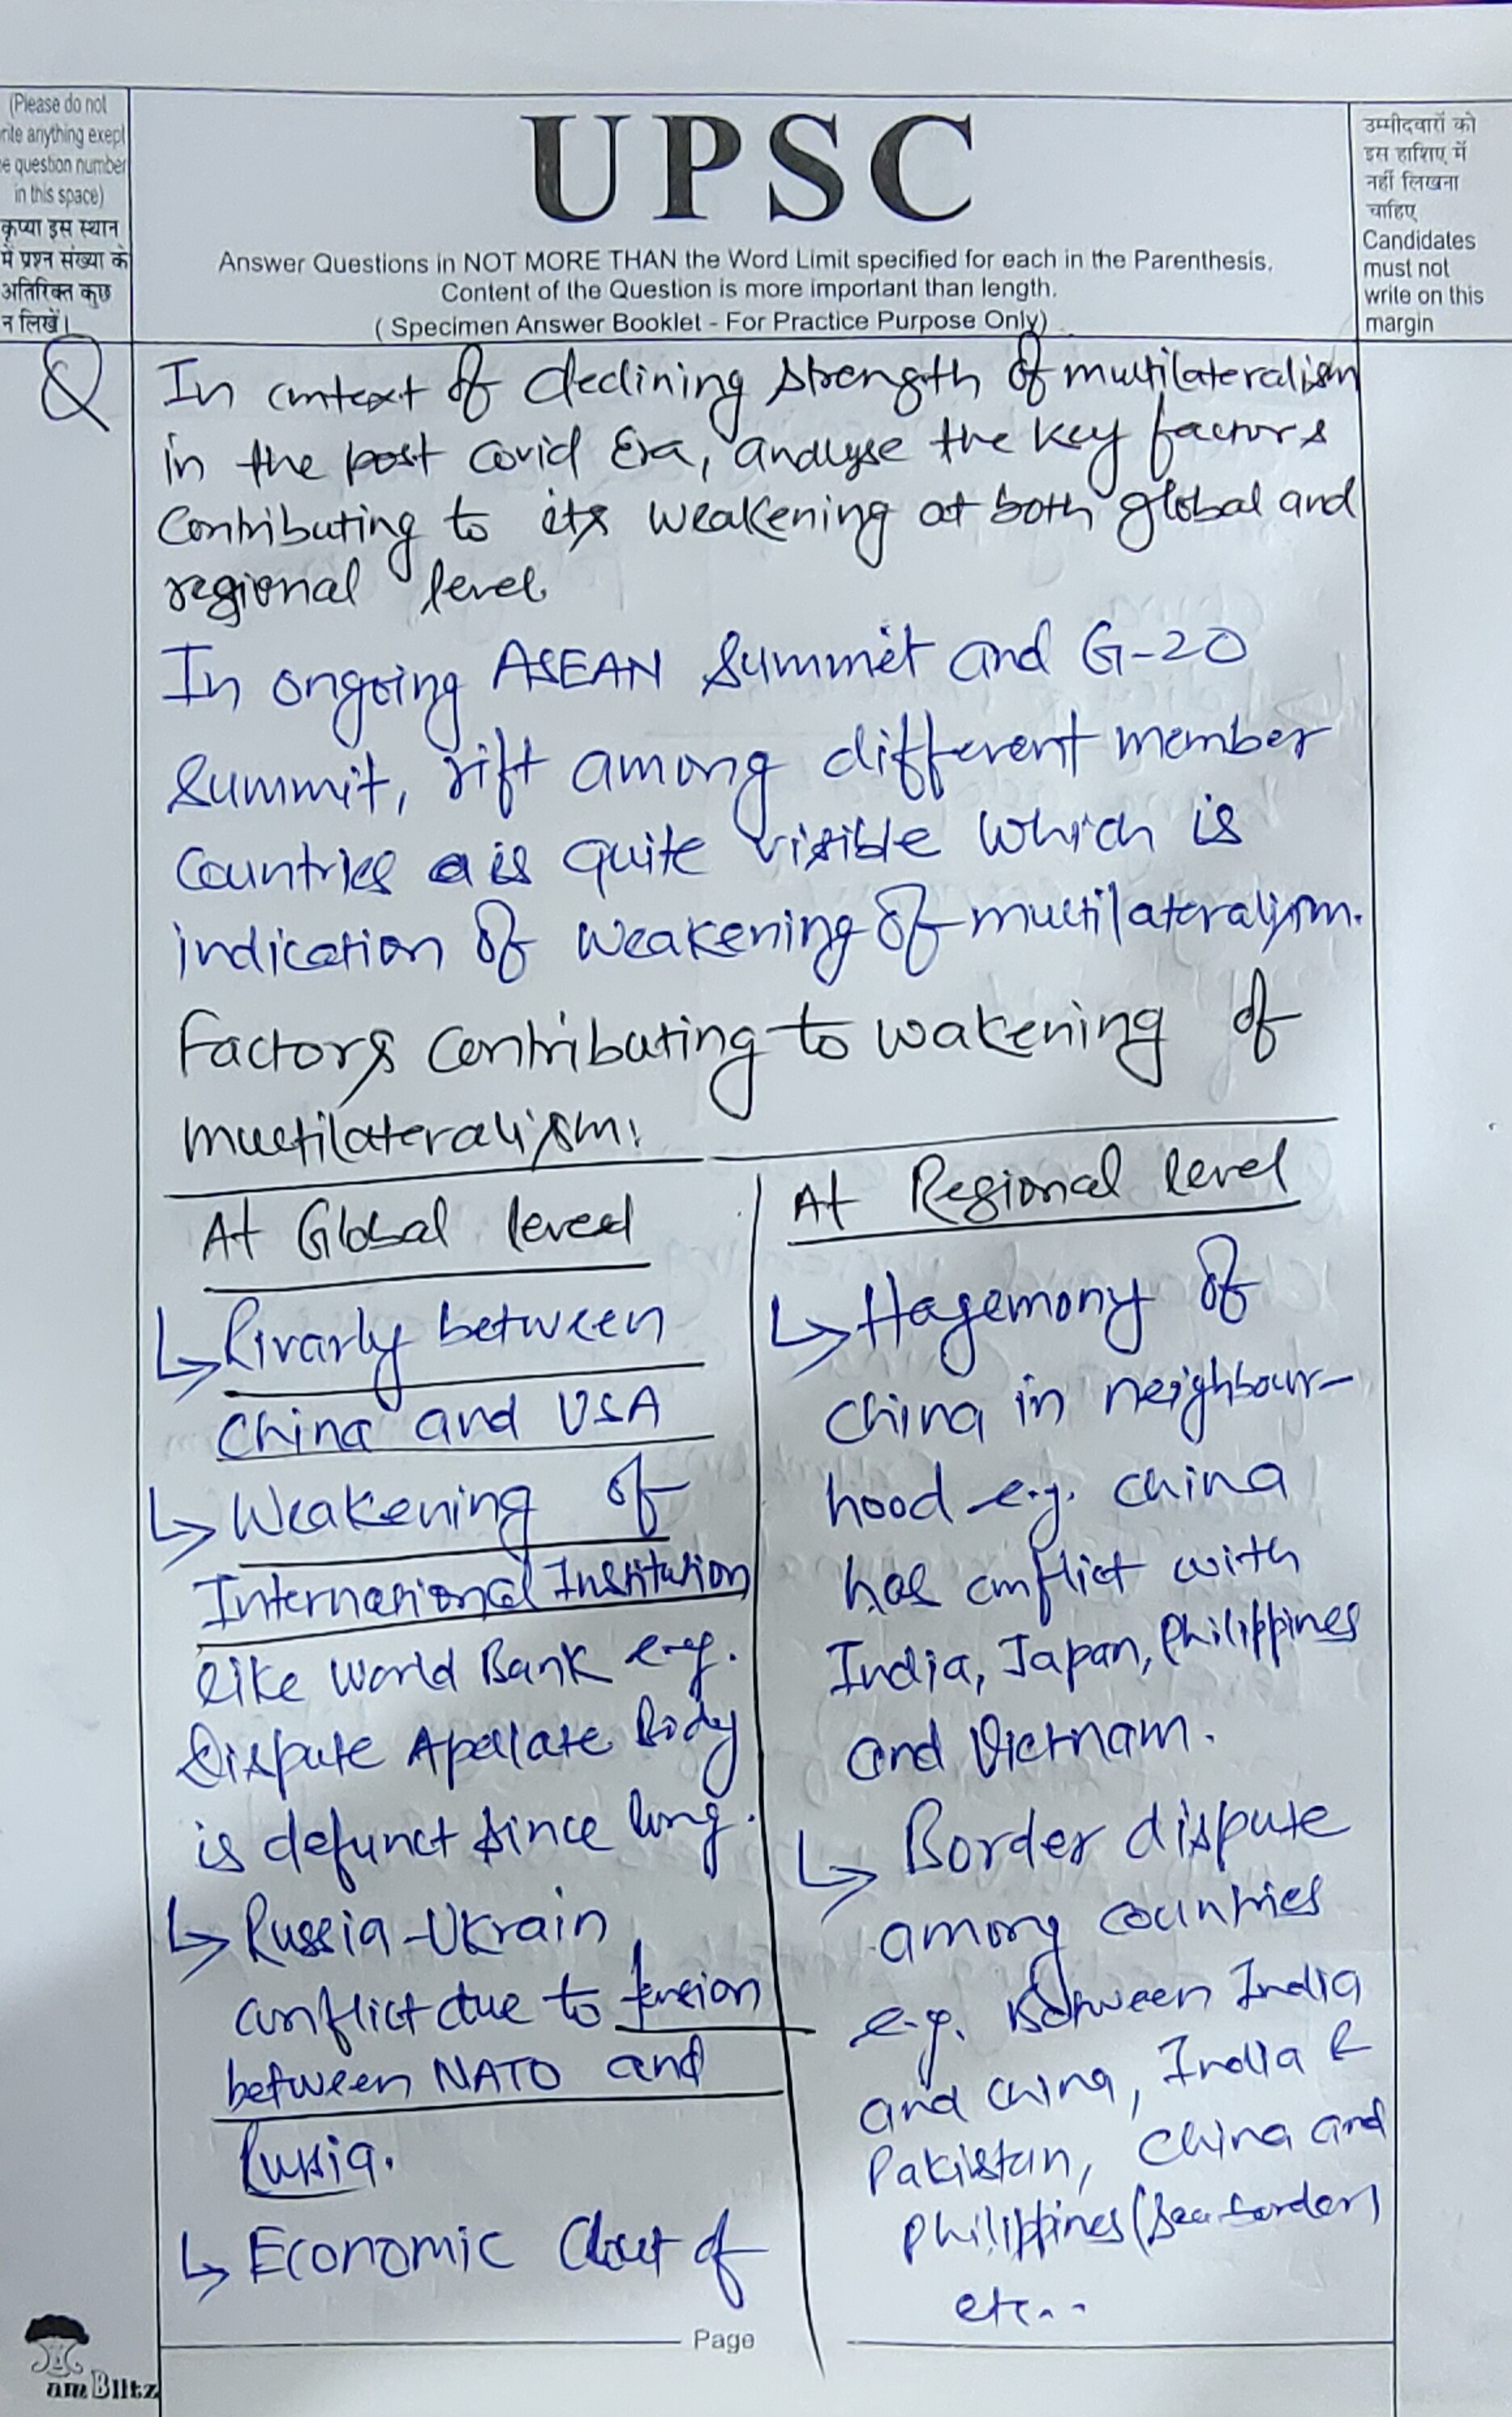 (Please do not
rite anything exept
e question number
in this space)
कृप्या इस स्थान
में प्रश्न संख्या के
अतिरिक्त कुछ
न लिखें।
UPSC
Answer Questions in NOT MORE THAN the Word Limit specified for each in the Parenthesis.
Content of the Question is more important than length.
( Specimen Answer Booklet - For Practice Purpose Only)
उम्मीदवारों को
इस हाशिए में
नहीं लिखना
चाहिए
Candidates
must not
write on this
margin
Q
In context of declining strength of multilateralism
in the post covid Era, analyse the key factors
contributing to its weakening at both global and
regional level.
In ongoing ASEAN Summit and G-20
Summit, rift among different member
countries is quite visible which is
indication of weakening of multilateralism.
Factors contributing to wakening of
multilateralism:
At Global level
↳ Rivarly between
China and USA
↳ Weakening of
International Institution
like World Bank e.g.
Dispute Apellate Body
is defunct since long.
↳ Russia-Ukrain
conflict due to tension
between NATO and
Russia.
↳ Economic Clout of
At Regional level
↳ Hagemony of
China in neighbour-
hood e.g. China
has conflict with
India, Japan, Philippines
and Vietnam.
↳ Border dispute
among countries
e.g. Between India
and China, India &
Pakistan, China and
Philippines (Sea border)
etc..
Page
am Blitz